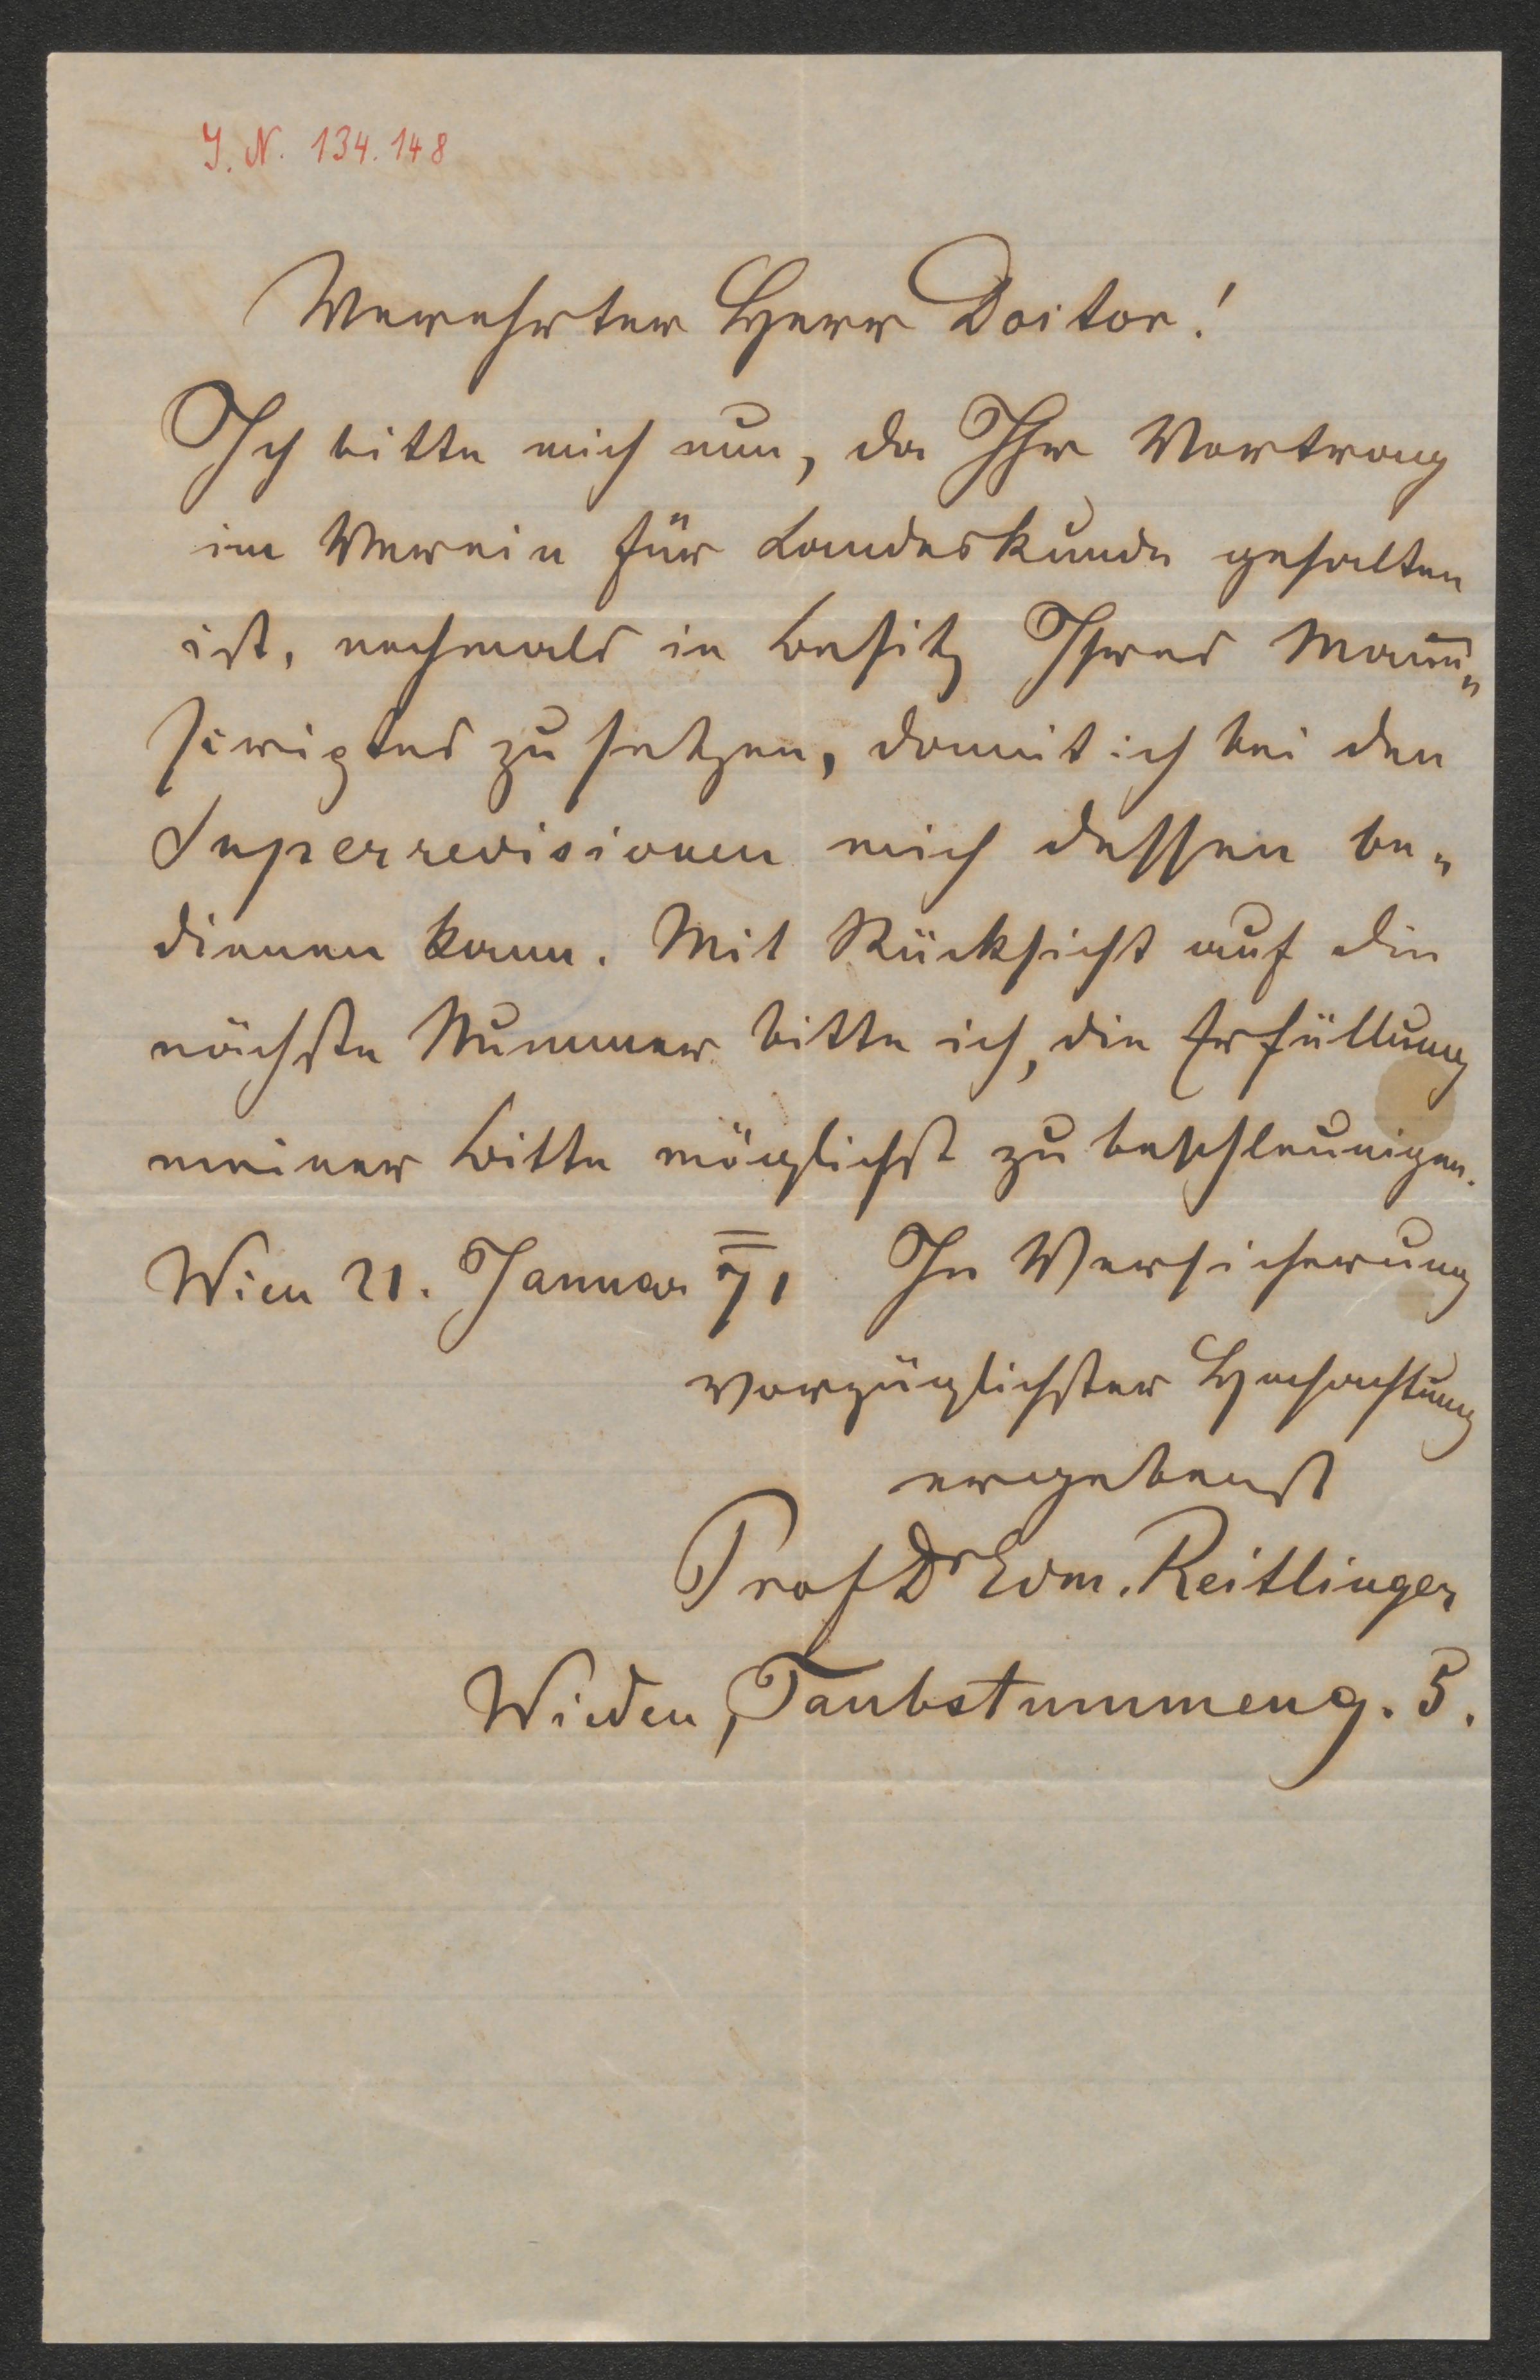 J. N. 134.148
Verehrter Herr Doctor!
Ich bitte mich nun, da Ihr Vortrag
im Verein für Landeskunde gehalten
ist, nochmals in Besitz Ihres Manu„
scriptes zu setzen, damit ich bei den
Superrevisionen mich dessen be„
dienen kann. Mit Rücksicht auf die
nächste Nummer bitte ich, die Erfüllung
meiner Bitte möglichst zu beschleunigen.
Wien 21. Januar 71 In Versicherung
vorzüglichster Hochachtung
ergebenst
Prof Dr Edm. Reitlinger
Wieden, Taubstummeng. 5.